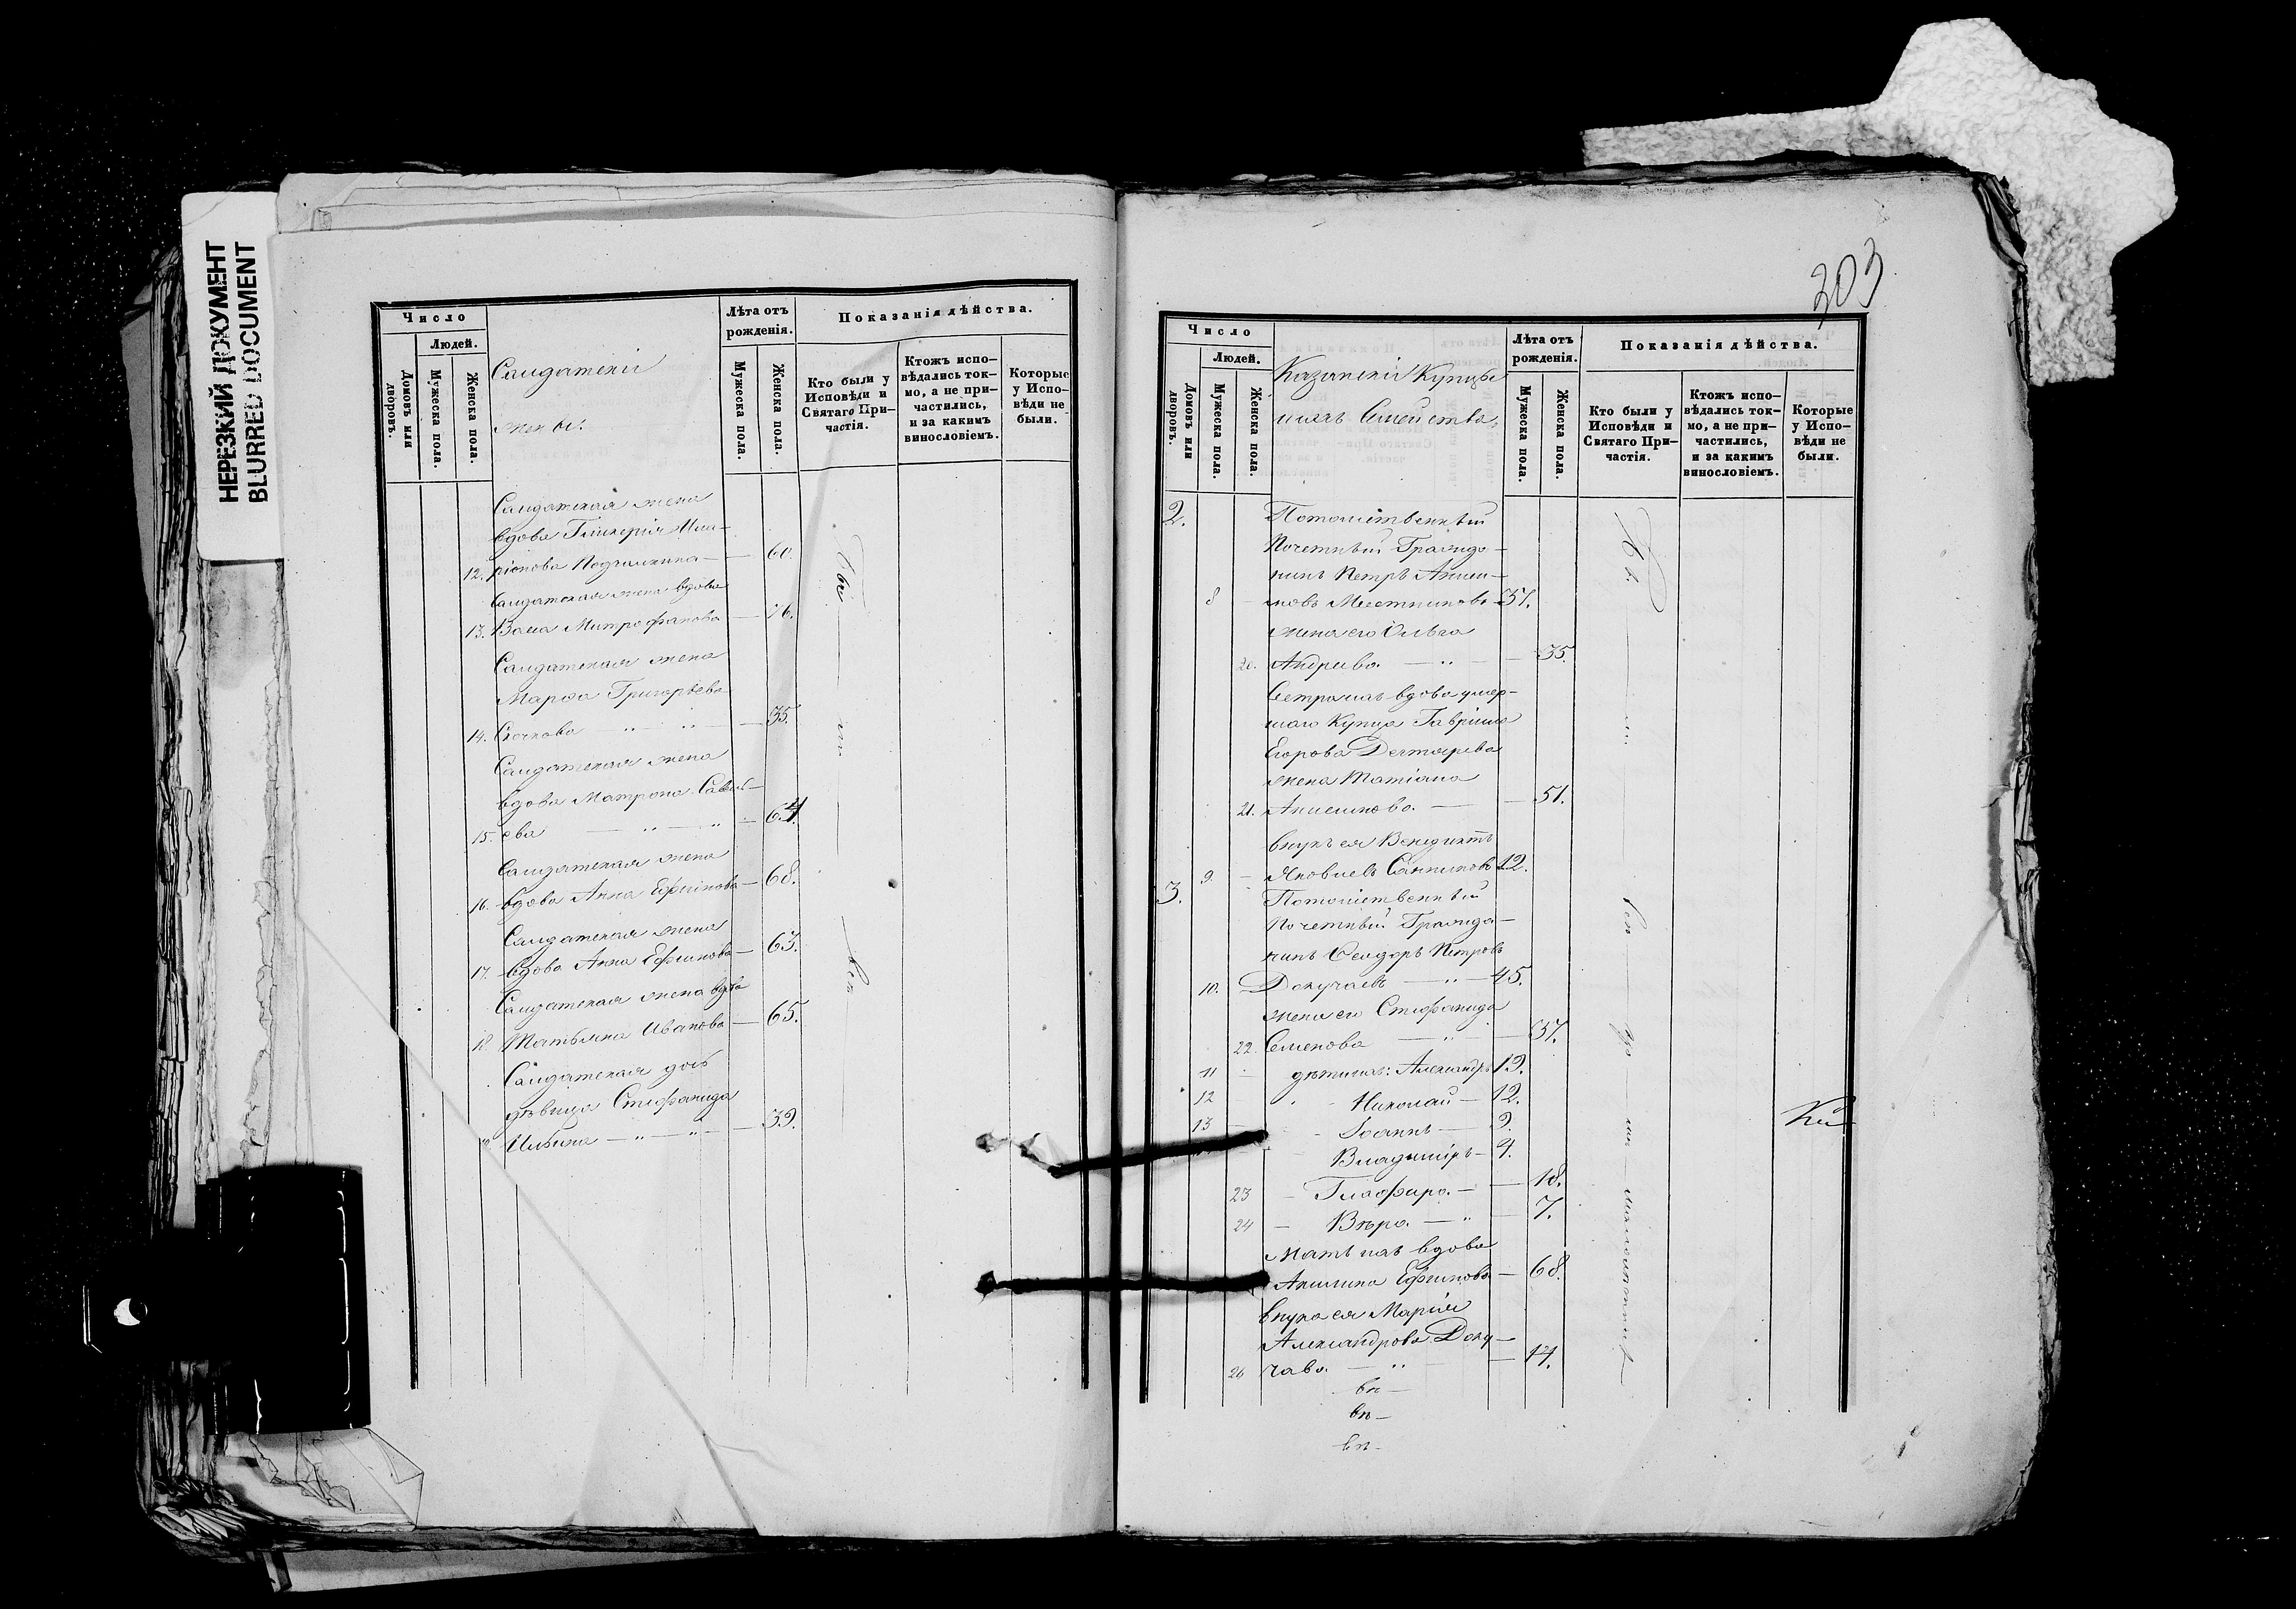 НЕРЕЗКИЙ ДОКУМЕНТ
BLURRED DOCUMENT
Число
Людей.
Домовъ или дворовъ.
Мужеска пола.
Женска пола.
Солдатскiи
жены.
Лѣта отъ
рожденiя.
Мужеска пола.
Женска пола.
Показанiя дѣйства.
Кто были у
Исповѣди и
Святаго При-
частiя.
Ктожъ испо-
вѣдались ток-
мо, а не при-
частились,
и за какимъ
винословiемъ.
Которые
у Испо-
вѣди не
были.
Солдатская жена
вдова Гликерiя Ила-
12. рiонова 60.
Солдатская жена вдова
13. Васса Митрофанова 76.
Солдатская жена
Марѳа Григорьева
14. 35.
Солдатская жена
вдова Матрона Савель-
15. ева 64.
Солдатская жена
16. вдова Анна Ефимова 68.
Солдатская жена
17. вдова Анна Ефимова 63.
Солдатская жена вдова
18. Татьяна Иванова 65.
Солдатская дочь
дѣвица Стефанида
Ильина 39.
Бы ли всѣ
203
Число
Людей.
Домовъ или дворовъ.
Мужеска пола.
Женска пола.
Казанскiи Купцы
и ихъ Семейства.
Лѣта отъ
рожденiя.
Мужеска пола.
Женска пола.
Показанiя дѣйства.
Кто были у
Исповѣди и
Святаго При-
частiя.
Ктожъ испо-
вѣдались ток-
мо, а не при-
частились,
и за какимъ
винословiемъ.
Которые
у Испо-
вѣди не
были.
2. Потомственный
Почетный Гражда-
нинъ Петръ Аниси-
8 мовъ Месетниковъ 37.
жена его Ольга
20. Андреева 35.
Сестра ихъ вдова умер-
шаго Купца Гаврiила
Егорова Дегтярева
жена Татiана
21. Анисимова 51.
внукъ ея Венедиктъ
9. Яковлевъ 12.
3. Потомственный
Почетный Гражда-
нинъ Ѳеодоръ Петровъ
10. Докучаевъ 45.
жена его Стефанида
22. Семенова 37.
11 дѣти ихъ: Александръ 13.
12 Николай 12.
13 Iоаннъ 9.
Владимiръ 4.
23 Глафира 18.
24 Вѣра 7.
Мать ихъ вдова
Акилина Ефимова 68.
внука ея Марiя
Александрова Доку-
26 чаева 14.